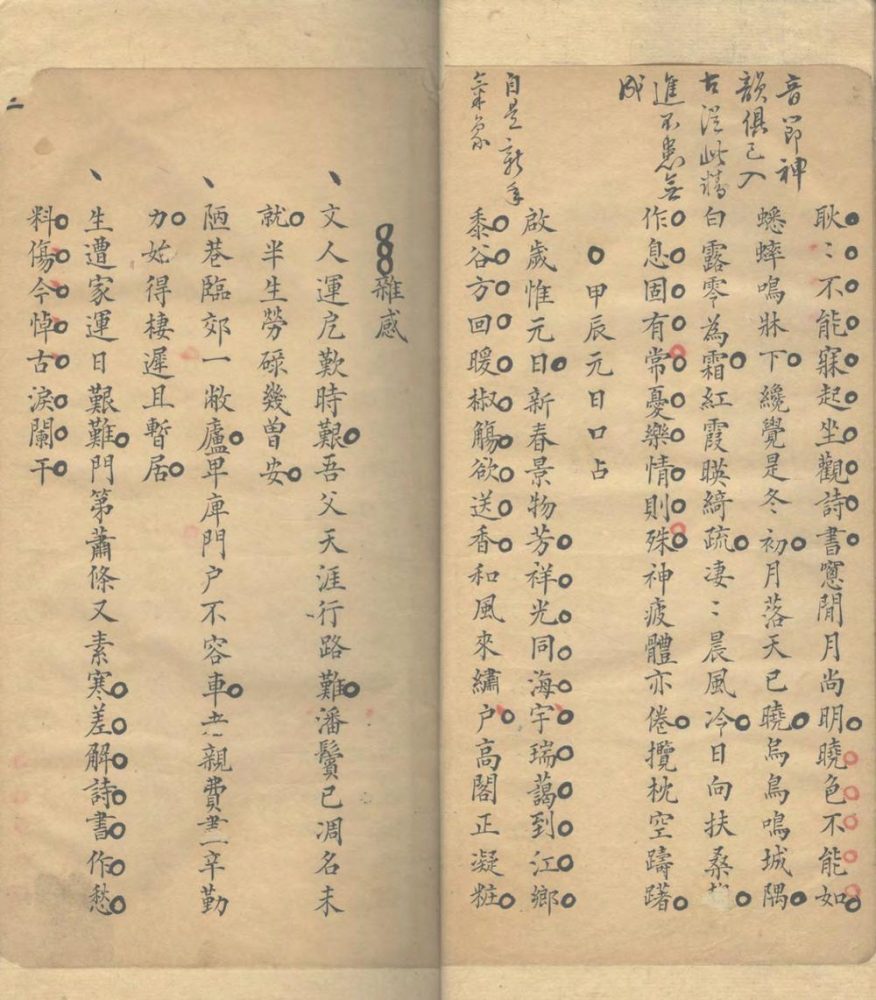 音節神
韻俱已入
古從此精
進不患無
成
耿〻不能寐起坐觀詩書窻閒月尚明曉色不能如
蟋蟀鳴牀下纔覺是冬初月落天已曉烏鳥鳴城隅
白露零為霜紅霞暎綺疏凄〻晨風冷日向扶桑
作息固有常憂樂情則殊神疲體亦倦攬枕空躊躇
甲辰元日口占
自是新年
氣象
啟歲惟元日新春景物芳祥光同海宇瑞藹到江鄉
黍谷方回暖椒觴欲送香和風來繡户高閣正凝粧
雜感
文人運戹歎時艱吾父天涯行路難潘鬢已凋名未
就半生勞碌幾曾安
陋巷臨郊一敝廬卑庫門户不容車親費辛勤
力始得棲遲且暫居
生遭家運日艱難門第蕭條又素寒差解詩書作愁
料傷今悼古淚闌干
二